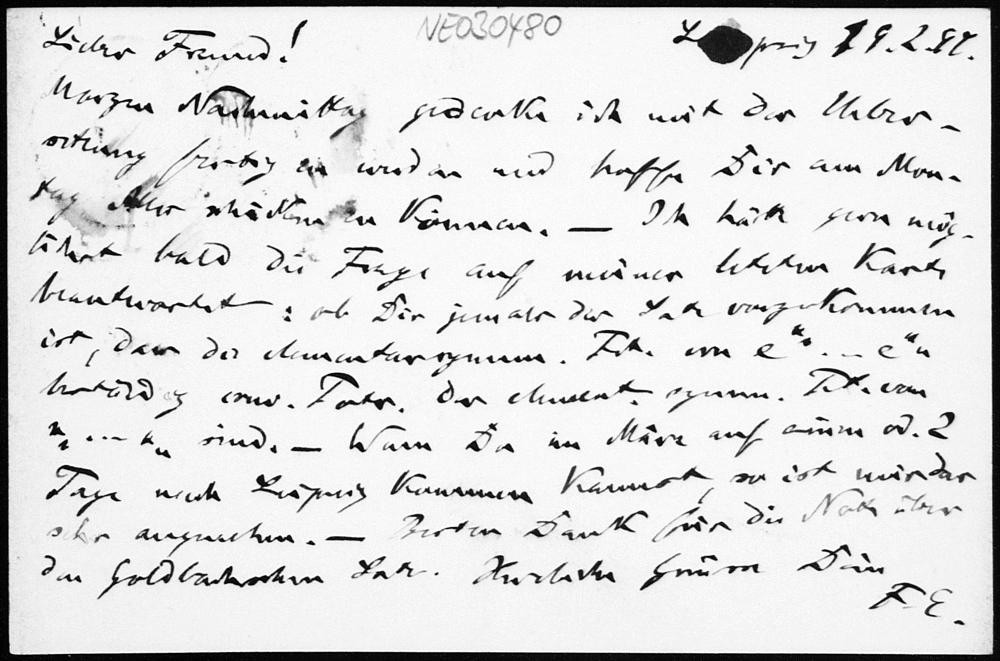 NE030480
Lieber Freund! Leipzig 19.2.97.
Morgen Nachmittag gedenke ich mit der Ueber-
setzung fertig zu werden und hoffe Dir am Mon-
tag Alles schicken zu können. — Ich hätte gern mög-
lichst bald die Frage auf meiner letzten Karte
beantwortet: ob Dir jemals der Satz vorgekommen
ist, dass die elementarsymm. Fkt. von
beständig Fkt. der element. symm. Fkt. von
sind. — Wenn Du im März auf einen od. 2
Tage nach Leipzig kommen kannst, so ist mir das
sehr angenehm. — Besten Dank für die Notiz über
den Goldbachschen Satz. Herzliche Grüsse Dein
F. E.